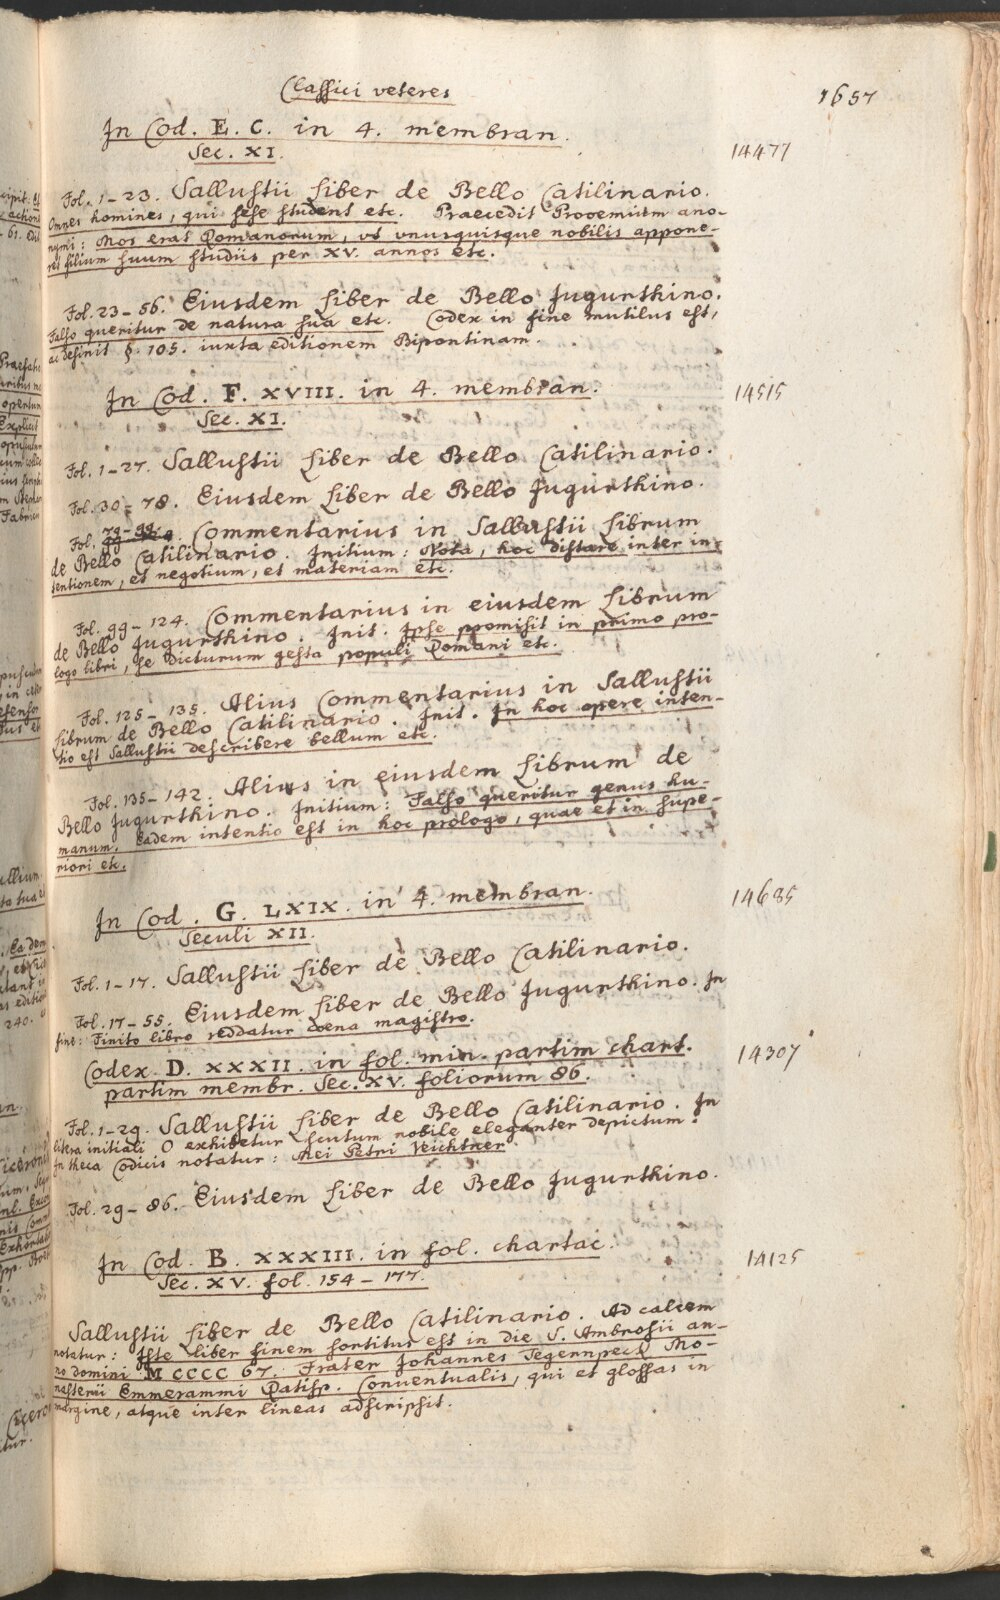 Classici veteres
1657
In Cod. E. C. in 4. membran.
14477
Sec. XI.
Fol. 1-23. Sallustii Liber de Bello Catilinario.
Omnes homines, qui sese student etc. Praecedit Prooemium ano-
nymi: Mos erat Romanorum, vt vnusquisque nobilis appone-
ret filium suum studiis per XV. annos etc.
Fol. 23-56. Eiusdem Liber de Bello Jugurthino.
Falso queritur de natura sua etc. Codex in fine mutilus est,
ac desinit §. 105. iuxta editionem Bipontinam.
In Cod. F. XVIII. in 4. membran.
14515
Sec. XI.
Fol. 1-27. Sallustii Liber de Bello Catilinario.
Fol. 30-78. Eiusdem Liber de Bello Jugurthino.
Fol. 79-99. Commentarius in Sallustii Librum
de Bello Catilinario. Initium: Nota, hoc distare inter in-
tentionem, et negotium, et materiam etc.
Fol. 99-124. Commentarius in eiusdem Librum
de Bello Jugurthino. Init. Ipse promisit in primo pro-
logo libri, se dicturum gesta populi Romani etc.
Fol. 125-135. Alius Commentarius in Sallustii
Librum de Bello Catilinario. Init. In hoc opere inten-
tio est Sallustii describere bellum etc.
Fol. 135-142. Alius in eiusdem Librum de
Bello Jugurthino. Initium: Falso queritur genus hu-
manum. Eadem intentio est in hoc prologo, quae et in supe-
riori etc.
In Cod. G. LXIX. in 4. membran.
14685
Seculi XII.
Fol. 1-17. Sallustii Liber de Bello Catilinario.
Fol. 17-55. Eiusdem Liber de Bello Jugurthino. In
fine: Finito libro reddatur coena magistro.
Codex D. XXXII. in fol. min. partim chart.
14307
partim membr. Sec. XV. foliorum 86.
Fol. 1-29. Sallustii Liber de Bello Catilinario. In
litera initiali O exhibetur scutum nobile eleganter depictum.
In theca Codicis notatur: Mei Petri Veichtner.
Fol. 29-86. Eiusdem Liber de Bello Jugurthino.
In Cod. B. XXXIII. in fol. chartac.
14125
Sec. XV. fol. 154-177.
Sallustii Liber de Bello Catilinario. Ad calcem
notatur: Iste liber finem sortitus est in die S. Ambrosii an-
no domini MCCCC 67. Frater Johannes Tegernpeck Mo-
nasterii Emmerammi Ratisp. Conventualis, qui et glossas in
margine, atque inter lineas adscripsit.